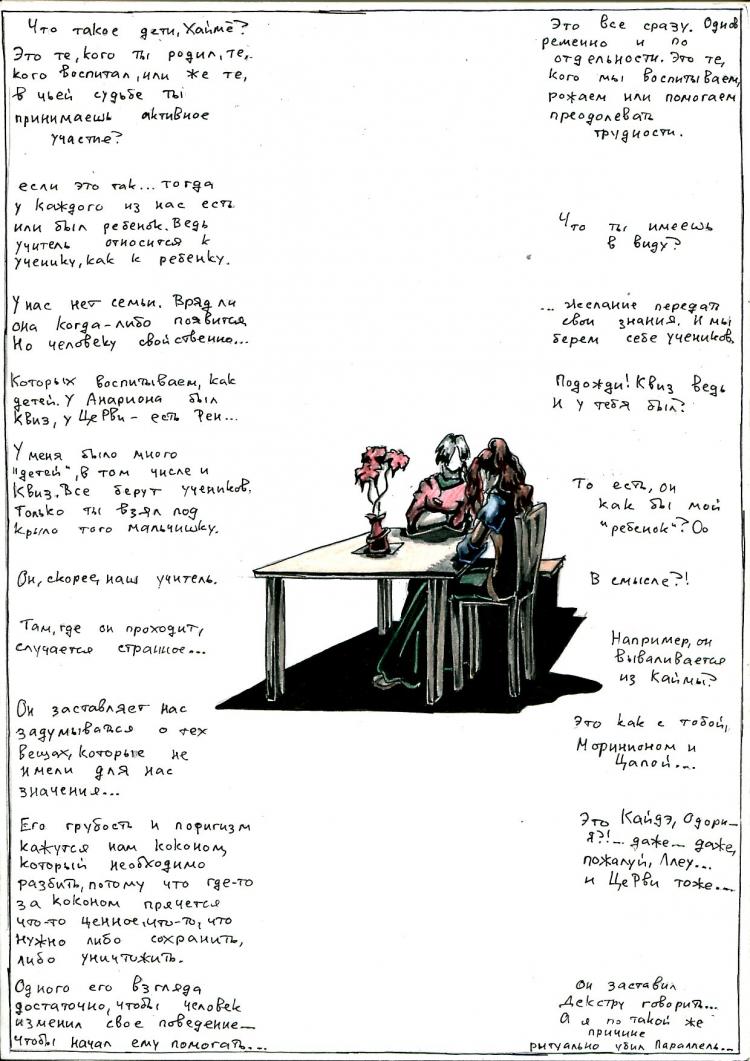 Что такое дети, Хаймё?
Это те, кого ты родил, те,
кого воспитал, или же те,
в чьей судьбе ты
принимаешь активное
участие?
Это все сразу. Однов
ременно и по
отдельности. Это те,
кого мы воспитываем,
рожаем или помогаем
преодолевать
трудности.
если это так... тогда
у каждого из нас есть
или был ребенок. Ведь
учитель относится к
ученику, как к ребенку.
Что ты имеешь
в виду?
У нас нет семьи. Вряд ли
она когда-либо появится
Но человеку свойственно...
... желание передать
свои знания. И мы
берем себе учеников.
Которых воспитываем, как
детей. У Анариона был
Квиз, у ЦеРви - есть Рен...
Подожди! Квиз ведь
и у тебя был?
У меня было много
"детей", в том числе и
Квиз. Все берут учеников.
Только ты взял под
крыло того мальчишку.
То есть, он
как бы мой
"ребенок"? Оо
Он, скорее, наш учитель.
В смысле?!
Там, где он проходит,
случается странное...
Например, он
вываливается
из Каймы?
Он заставляет нас
задумываться о тех
вещах, которые не
имели для нас
значения...
Это как с тобой,
Моринионом и
Цапой...
Его грубость и пофигизм
кажутся нам коконом,
который необходимо
разбить, потому что где-то
за коконом прячется
что-то ценное, что-то, что
нужно либо сохранить,
либо уничтожить.
Это Кайдэ, Одори-
я?!... даже... даже,
пожалуй, Ллеу...
и ЦеРви тоже...
Одного его взгляда
достаточно, чтобы человек
изменил свое поведение...
чтобы начал ему помогать...
Он заставил
Декстру говорить...
А я по такой же
причине
ритуально убил Параллель...